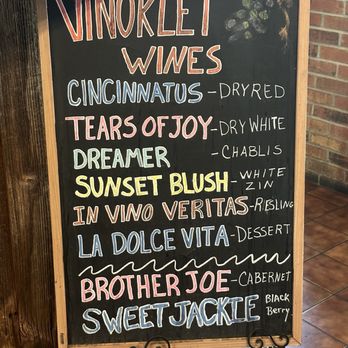 VINOKLET
WINES
CINCINNATUS - DRY RED
TEARS OF JOY - DRY WHITE
DREAMER - CHABLIS
SUNSET BLUSH - WHITE ZIN
IN VINO VERITAS - RIESLING
LA DOLCE VITA - DESSERT
BROTHER JOE - CABERNET
SWEET JACKIE BlACK Berry